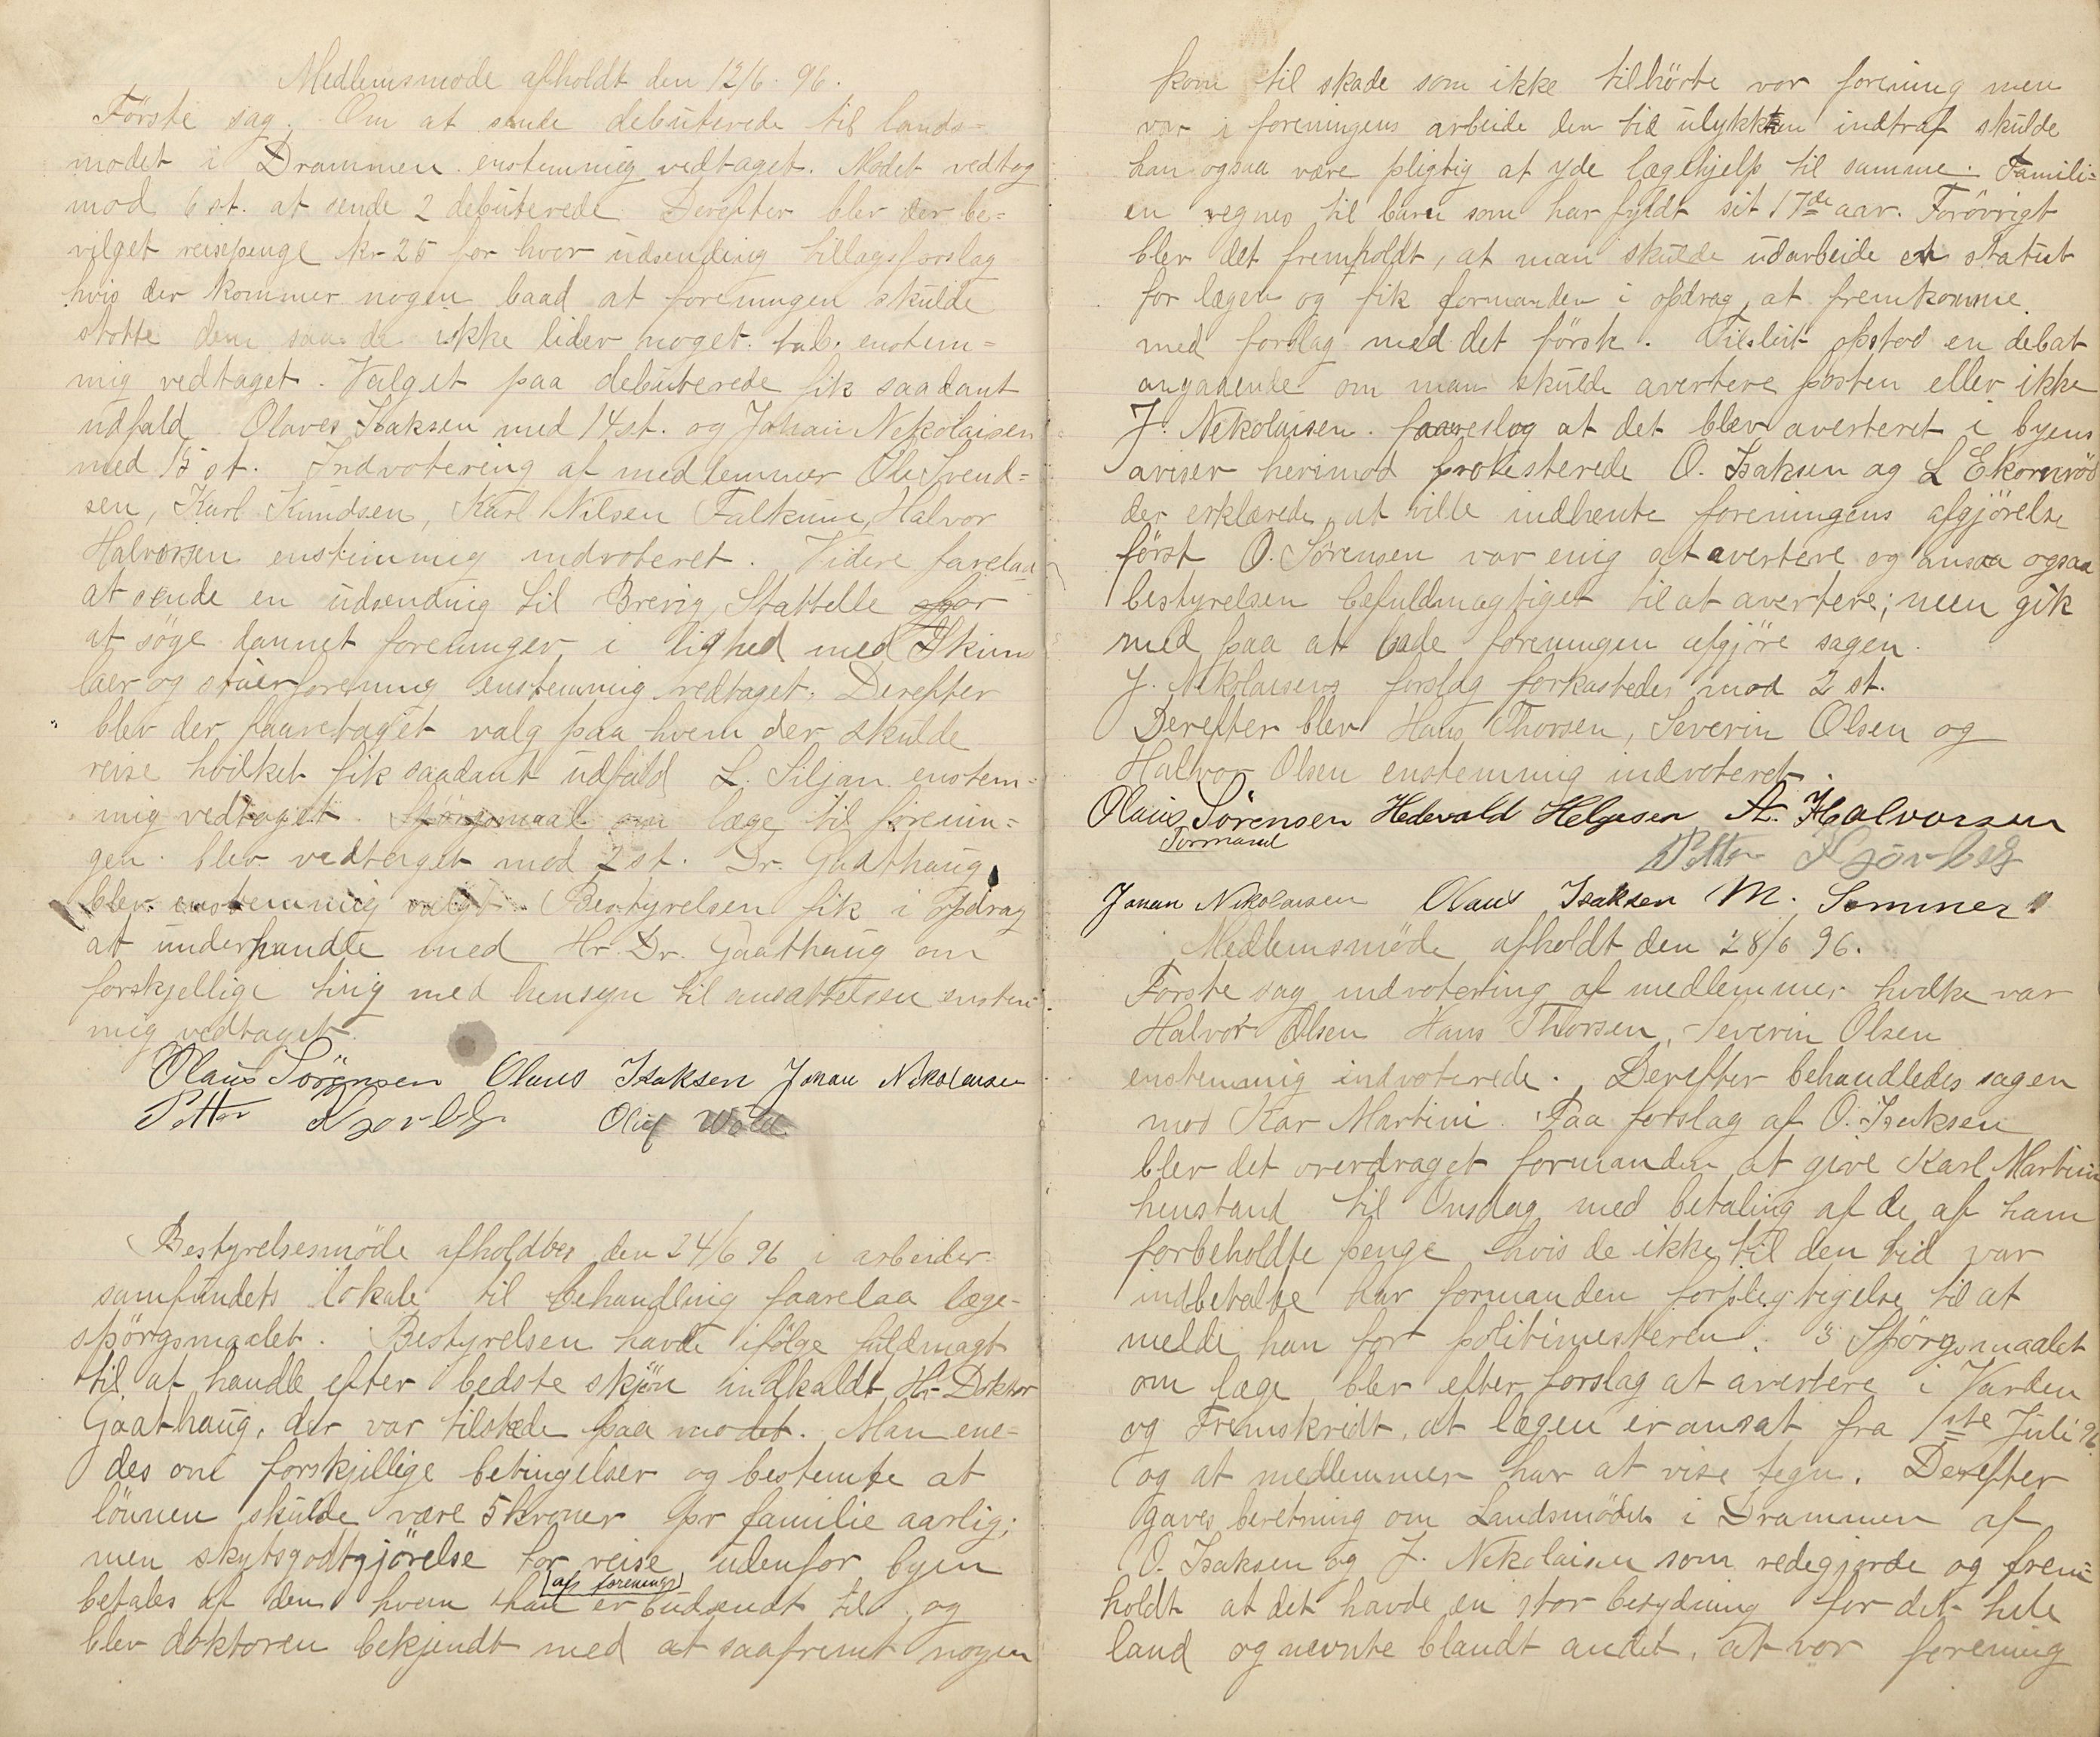 Medlemsmøde afholdt den 12/6. 96.
Förste sag. Om at sende debuterede til lands-
mødet i Drammen enstemmig vedtaget. Mødet vedtog
mod 6 st. at sende 2 debuterede Derefter blev der be-
vilget reisepenge kr 25 for hver udsending tillagsforslag
hvis der kommer nogen baad at foreningen skulde
støtte dem saa de ikke lider noget tab. enstem-
mig vedtaget. Valget paa debuterede fik saadant
udfald Olaves Isaksen med 14 st. og Johan Nekolaisen
med 15 st. Indvotering af medlemmer Ole Svend-
sen, Karl Knudsen, Karl Nilsen Falkum, Halvor
Halvorsen enstemmig indvoteret. Videre farelaa
at sende en udsending til Brevig, Stathelle for
at söge dannet foreninger i lighed med Skien
laer og stuerforening enstemmig vedtaget. Derefter
blev der faaretaget valg paa hvem der skulde
reise hvilket fik saadant udfald L. Siljan enstem-
mig vedtaget. Spörgsmaal om læge til forenin-
gen blev vedtaget mod 2 st. Dr. Gaathaug
blev enstemmig valgt. Bestyrelsen fik i opdrag
at underhandle med Hr. Dr. Gaathaug om
forskjellige ting med hensyn til ansættelsen enstem-
mig vedtaget.
Olaus Sörensen Olaus Isaksen Johan Nekolaisen
Petter Oluf Wold
Bestyrelsesmöde afholdtes den 24/6 96 i arbeider-
samfundets lokale til behandling faarelaa læge-
spörgsmaalet. Bestyrelsen havde ifölge fuldmagt
til at handle efter bedste skjön indkaldt Hr Doktor
Gaathaug, der var tilstede paa mødet. Man ene-
des om forskjellige betingelser og bestemte at
lönnen skulde være 5 kroner pr familie aarlig;
men skytsgodtgjörelse for reise udenfor byen
(af forenings)
betales af den hvem han er budsendt til og
blev doktoren bekjendt med at saafremt nogen
kom til skade som ikke tilhörte vor forening men
var i foreningens arbeide den tid ulykken indtraf skulde
han ogsaa være pligtig at yde lægehjelp til samme. Famili-
en regnes til barn som har fyldt sit 17de aar. Forövrigt
blev det fremholdt, at man skulde udarbeide en statut
for lægen og fik formanden i opdrag at fremkomme
med forslag med det först. Tilslut opstod en debat
angaaende om man skulde avertere posten eller ikke
J. Nekolaisen. faareslog at det blev averteret i byens
aviser herimod protesterede O. Isaksen og L Ekornröd
der erklærede at ville indhente foreningens afgjörelse
först O. Sörensen var enig at avertere og ansaa ogsaa
bestyrelsen befuldmagtiget til at avertere; men gik
med paa at lade foreningen afgjöre sagen.
J. Nekolaisens forslag forkastedes mod 2 st.
Derefter blev Hans Thorsen, Severin Olsen og
Halvor Olsen enstemmig indvoteret.
Olaus Sörensen Hedevald Helgesen A. Halvorsen
Formand
Petter
Johan Nekolaisen Olaus Isaksen M. Sommer
Medlemsmöde afholdt den 28/6 96.
Förste sag indvotering af medlemmer hvilke var
Halvor Olsen Hans Thorsen, Severin Olsen
enstemmig indvoterede. Derefter behandledes sagen
mod Kar Martini. Paa forslag af O. Isaksen
blev det overdraget formanden at give Karl Martini
henstand til Onsdag med betaling af de af ham
forbeholdte penge hvis de ikke til den tid var
indbetalte har formanden forpligtigelse til at
melde han for politimesteren. 3 Spörgsmaalet
om læge blev efter forslag at avertere i Varden
og Fremskridt, at lægen er ansat fra 1ste Juli 96
og at medlemmer har at vise tegn. Derefter
gaves beretning om Landsmödet i Drammen af
O. Isaksen og J. Nekolaisen som redegjorde og frem-
holdt at det havde en stor betydning for det hele
land og nevnte blandt andet, at vor forening